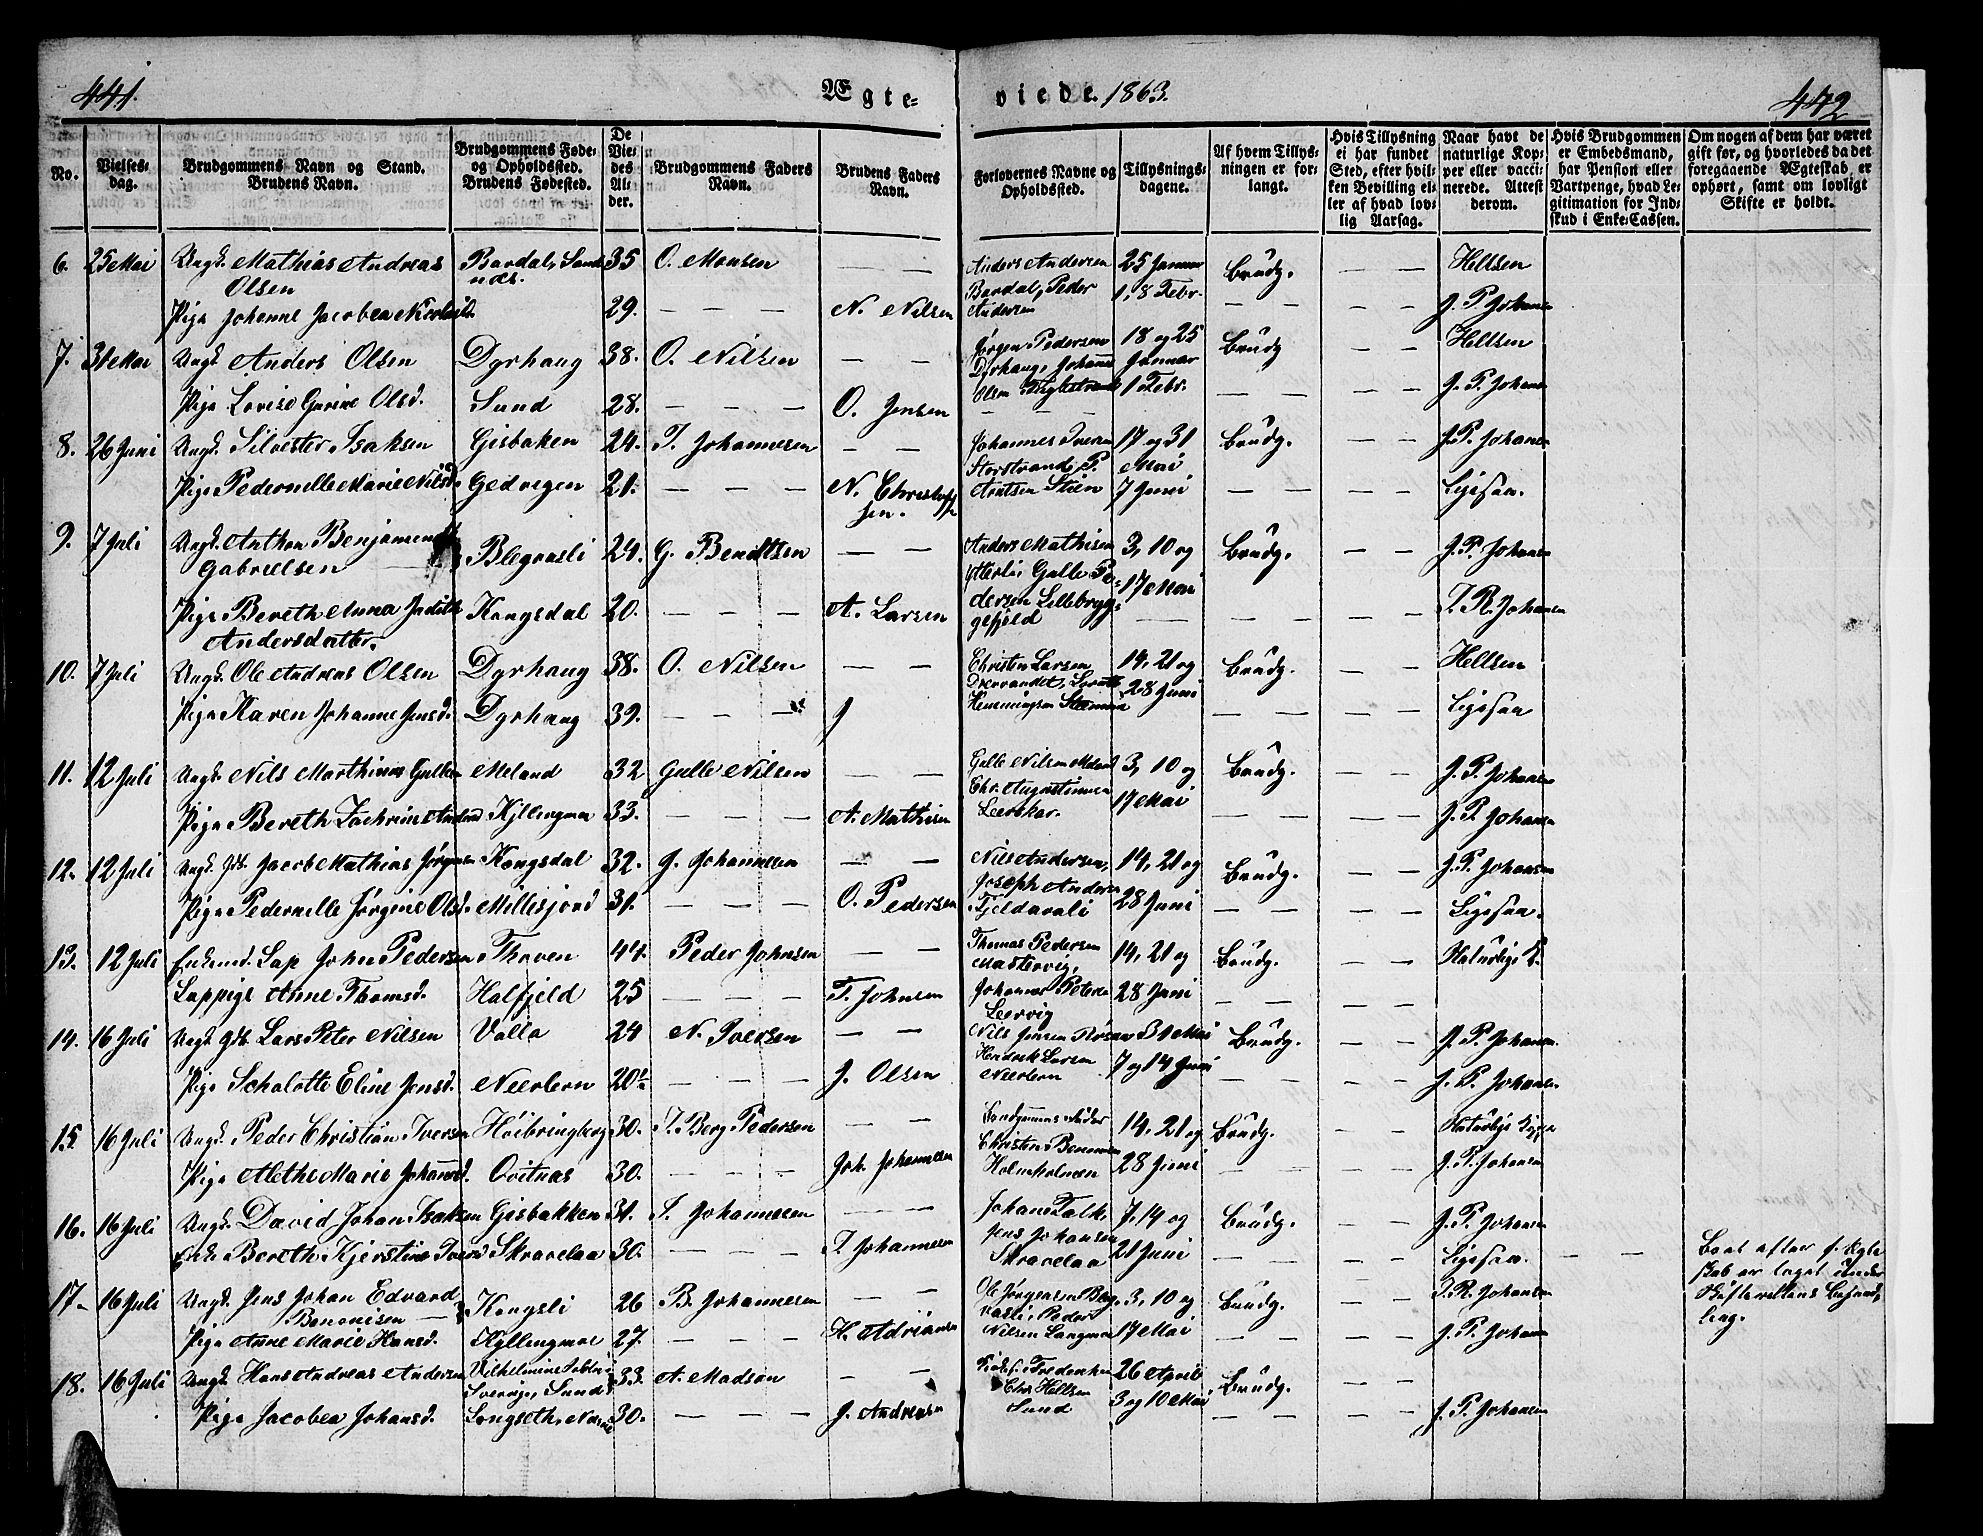 441.
Ægte-
viede. 1863.
442
No.
Vielses-
dag.
Brudgommens Navn og Stand.
Brudens Navn.
Brudgommens Føde-
og Opholdssted.
Brudens Fødested.
De
Vie-
des
Al-
der.
Brudgommens Faders
Navn.
Brudens Faders
Navn.
Forlovernes Navne og
Opholdssted.
Tillysnings-
dagene.
Af hvem Tillys-
ningen er for-
langt.
Hvis Tillysning
ei har fundet
Sted, efter hvil-
ken Bevilling el-
ler af hvad lov-
lig Aarsag.
Naar havt de
naturlige Kop-
per eller vacci-
nerede. Attest
derom.
Hvis Brudgommen
er Embedsmand,
har Pension eller
Vartpenge, hvad Le-
gitimation for Ind-
skud i Enke-Cassen.
Om nogen af dem har været
gift før, og hvorledes da det
foregaaende Ægteskab er
ophørt, samt om lovligt
Skifte er holdt.
6. 25 Mai Ungk. Mathias Andreas Bardal, Sund 35 O. Monsen — — Anders Andersen 25 Januar Brudg. — — Hellsen
Olsen Bardal, Peder 1, 8 Febr.
Pige Johanne Jacobea 29. — — — N. Nilsen Andersen — — — — J. P. Johansen
7. 31 Mai Ungk. Anders Olsen Dyrhaug 38. O. Nilsen — — Jørgen Pedersen 18 og 25 Brudg — — Hellsen
Dyrhaug, Johannes Januar
Pige Lovise Gurine Olsd. Sund 28. — — — O. Jensen Olsen 1 Febr. J. P. Johansen
8. 26 Juni Ungk. Silvester Isaksen Gisbaken 24. I. Johannesen — — Johannes Iversen 17 og 31 Brudg. — — J. P. Johansen
Storstrand, P. Mai
Pige Pedernelle Marie Nilsd. Gedvigen 21. — — — N. Christoff Arntsen Stien 7 Juni — — — — Ligesaa.
sen.
9. 7 Juli Ungk. Anthon Benjamin Blegvasli 24. G. Bendtsen — — Anders Mathisen 3, 10 og Brudg. — — J. P. Johansen
Gabrielsen Ytterli, Gulle Pe- 17 Mai
Pige Bereth Anna Judith Kongsdal 20. — — — A. Larsen dersen Lillebryg- — — — — J. R. Johansen
Andersdatter. gefjeld
10. 7 Juli Ungk. Ole Andreas Olsen Dyrhaug 38. O. Nilsen — — Christen Larsen 14, 21 og Brudg. — — Hellsen
28 Juni
Pige Karen Johanne Jensd. Dyrhaug 39. — — — J Henningsen — — — — Ligesaa
11. 12 Juli Ungk. Nils Marthinus Gullesen Meland 32 Gulle Nilsen — — Gulle Nilsen Meland 3, 10 og Brudg. — — J. P. Johansen
Chr. Augustinusen 17 Mai
Pige Bereth Zachrine Andersd. Kyllingmoe 33. — — — A. Mathisen Leerskar. — — — — J. P. Johansen
12. 12 Juli Ungk. Gdb. Jacob Mathias Jørgensen Kongsdal 32. J. Johannesen — — Nils Andersen, 14, 21 og Brudg. — — J. P. Johansen
Joseph Andersen
Pige Pedernille Jørgine Olsd. Millesjord 31. — — — O. Pedersen Fjeldavali 28 Juni — — — — Ligesaa.
13. 12 Juli Enkemd. Lap John Pedersen Thoven 44. Peder Johnsen — — Thomas Pedersen 14, 21 og Brudg. — — Naturlige K.
Mastervig,
Lappige Anne Thomsd. Halfjeld 25 — — — T. Johnsen Johannes Petersen 28 Juni — — — —
Leervig
14. 16 Juli Ungk. Gdb. Lars Peter Nilsen Valla 24 N. Iversen — — Nils Jensen 31 Mai Brudg. — — J. P. Johansen.
Hendrik Larsen 7 og 14 Juni
Pige Schalotte Eline Jensd. Neerlern 20 — — — J. Olsen Neerlern — — — — J. P. Johansen
15. 16 Juli Ungk. Peder Christian Iversen Høibringberg 30. I. Berg Pedersen — — 14, 21 og Brudg. — — Naturlige
Christen
Pige Alethe Marie Johannesd. Qvitnæs 30. — — — Joh. Johannesen Holmholmen 28 Juni — — — — J. P. Johansen
16. 16 Juli Ungk. David Johan Isaksen Gisbakken 31. I. Johannesen — — Johan Falk, 7, 14 og Brudg. — — J. P. Johansen
Jens Johansen
Enke Bereth Kjerstine Iversd. Skravelaa 30. — — — I. Johannesen Skravelaa 21 Juni — — — — Ligesaa. — — Boet efter f. Ægte
skab er taget under
Skifterettens Behand
ling.
17. 16 Juli Ungk. Jens Johan Edvard Kongsli 26 B. Johannesen — — Ole Jørgensen Bleg- 3, 10 og Brudg. — — J. R. Johansen
Benonisen vasli, Peder
Pige Anne Marie Hansd. Kyllingmoe 27. — — — H. Adriansen Nilsen Langmoe 17 Mai — — — — J. P. Johansen
18. 16 Juli Ungk. Hans Andreas Andersen Vilhelmine 33. A. Madsen — — Fredrikson 26 April Brudg. — —
Sverige, Sund Chr. Hellsen
Pige Jacobea Johansd. Longseth, 30. — — — J. Andersen Sund 3 og 10 Mai — — — — J. P. Johansen